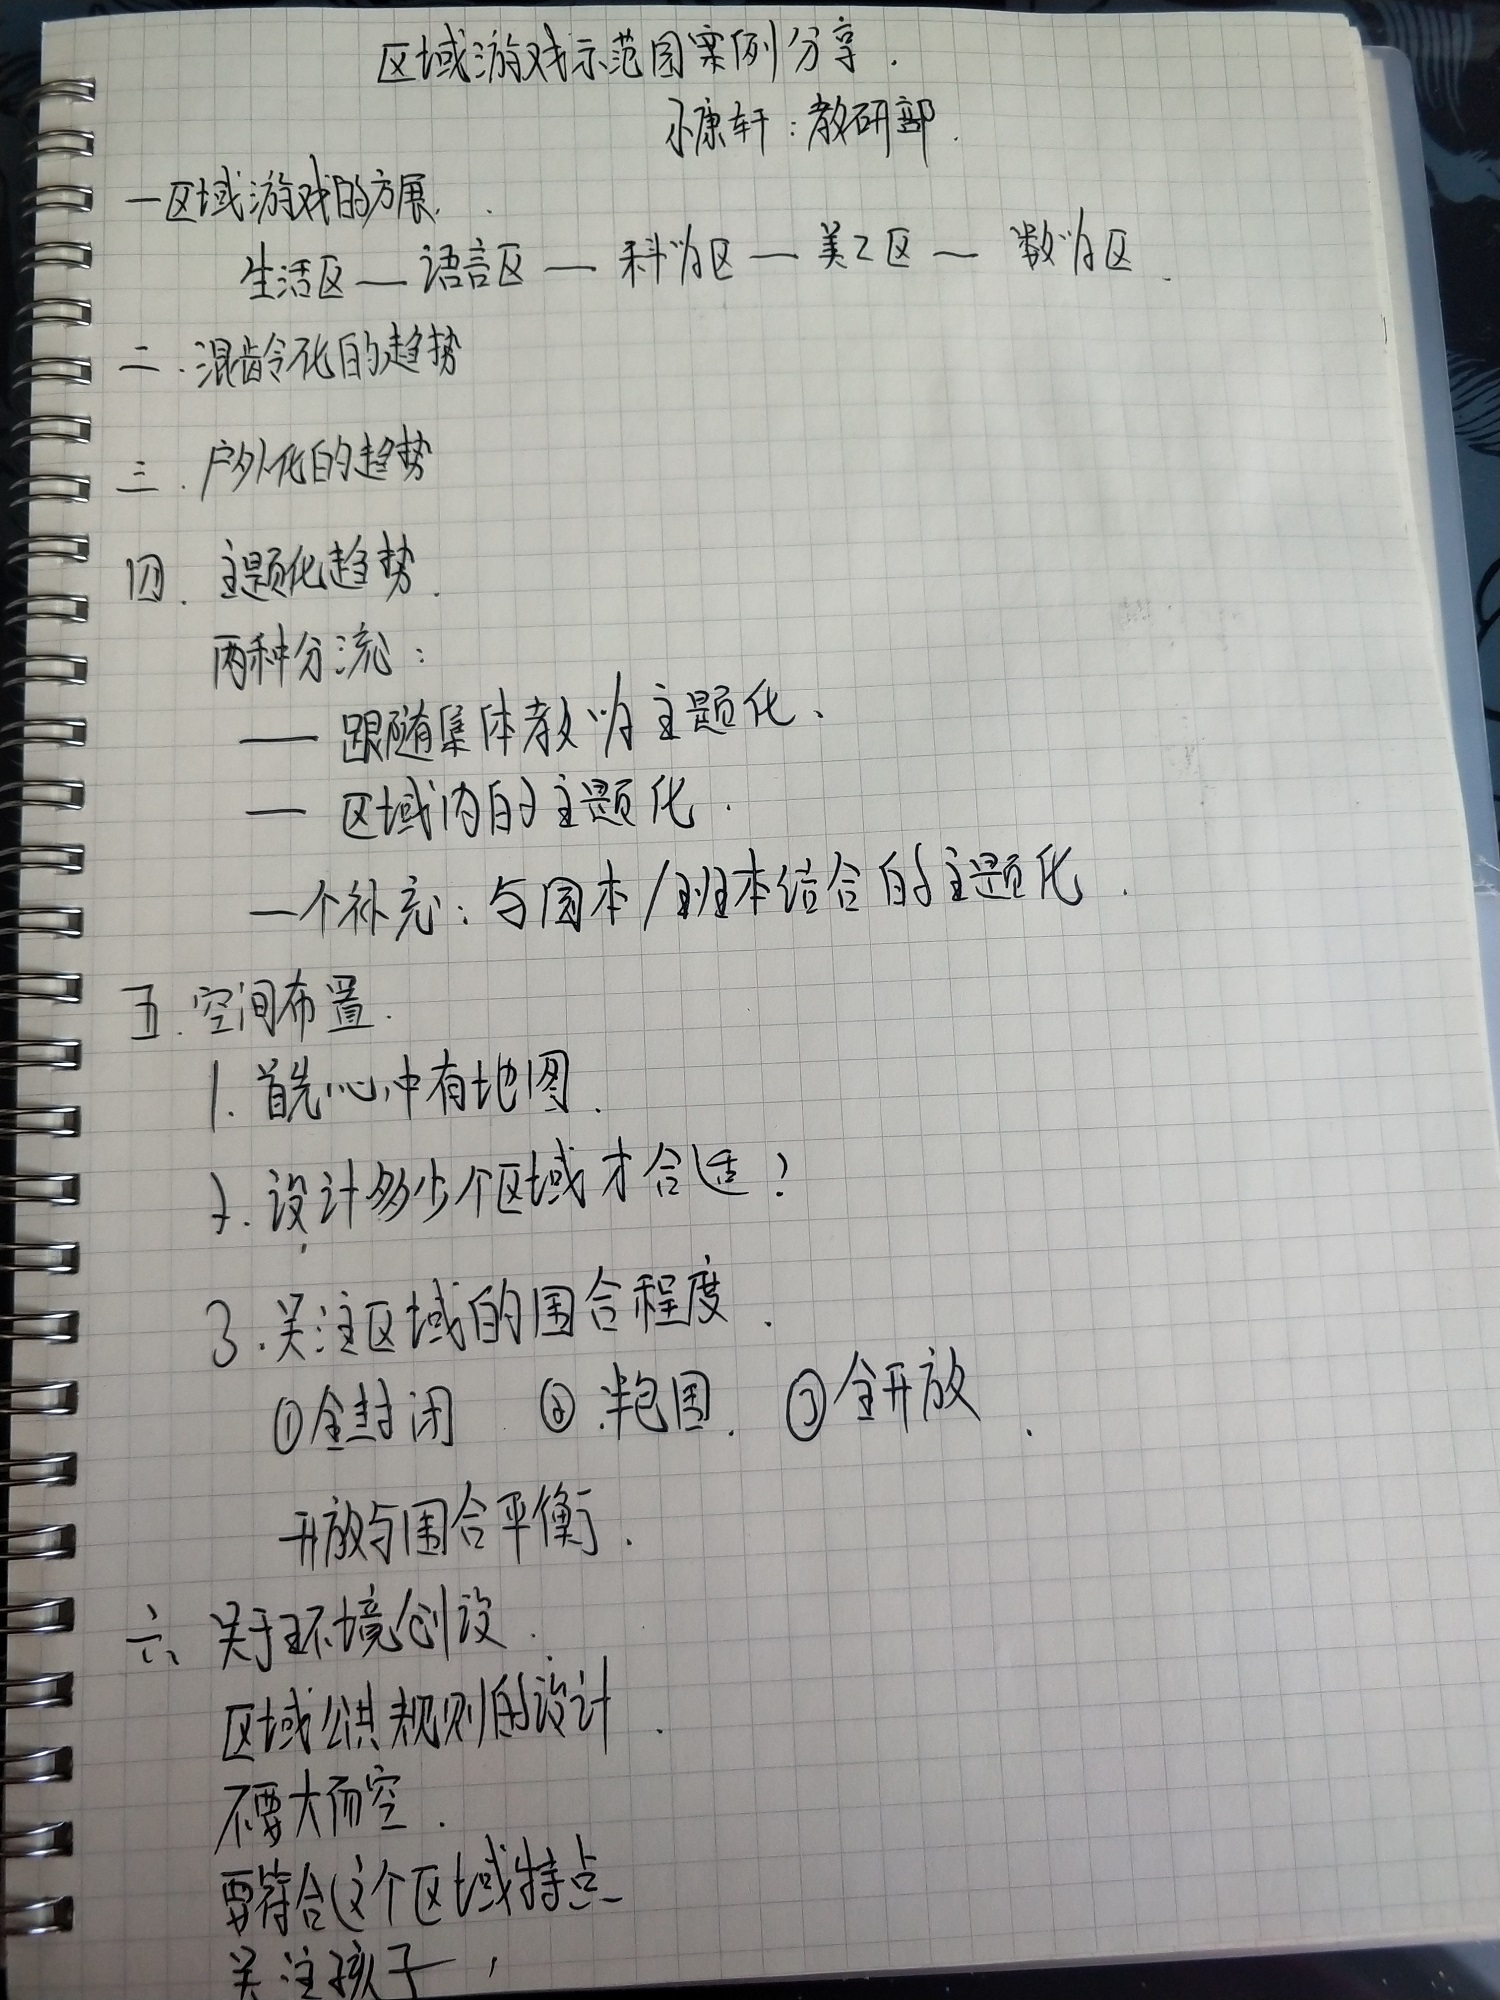 区域游戏示范园案例分享.
小康轩：教研部.
一区域游戏的方展.
生活区—语言区—科学区—美工区—数学区.
二.混龄化的趋势
三.户外化的趋势
四.主题化趋势.
两种分流：
—跟随集体教学主题化、
—区域内的主题化.
一个补充：与园本/班本结合的主题化.
五.空间布置.
1.首先心中有地图.
2.设计多少个区域才合适？
3.关注区域的围合程度.
①全封闭 ②半包围. ③全开放.
开放与围合平衡.
六、关于环境创设.
区域公共规则的设计.
不要大而空.
要符合这个区域特点
关注孩子,